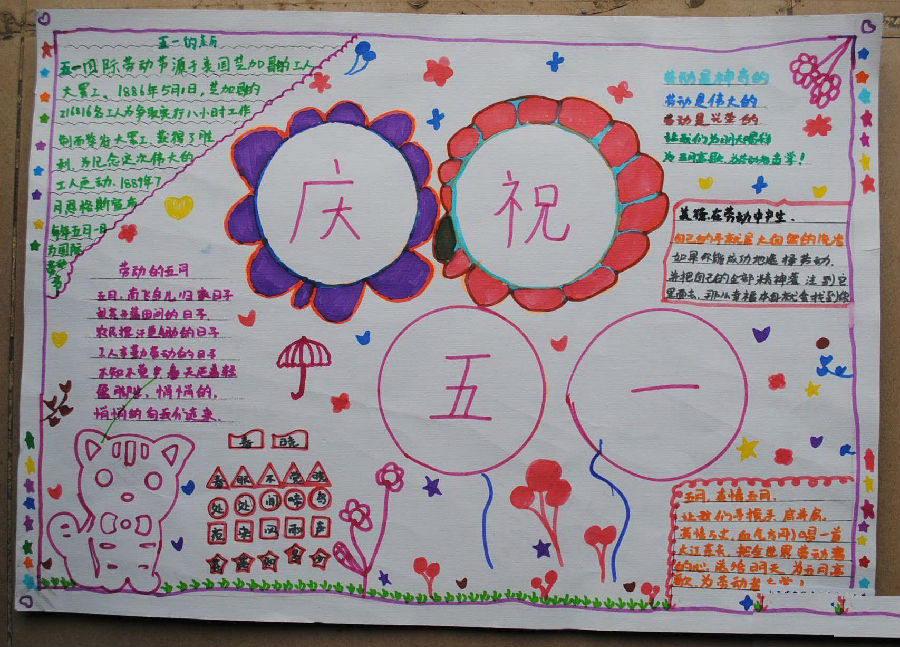 五一的来历
五一国际劳动节源于美国芝加哥的工人
大罢工。1886年5月1日,芝加哥的
216816名工人为争取实行八小时工作
制而举行大罢工,获得了胜
利。为纪念这次伟大的
工人运动,1889年7
月恩格斯宣布
每年五月一日
为国际
劳动
节
庆
祝
五
一
劳动是神奇的
劳动是伟大的
劳动是光荣的
让我们为
为五月高歌,为劳动者喝彩!
美德,在劳动中产生.
自己的手就是
如果你能成功地选择劳动,
并把自己的全部精神灌注到它
里面去,那么幸福本身就会找到你
劳动的五月
五月,南飞鸟儿归家日子
田间的日子
农民挥汗
工人辛勤劳动的日子
不知不觉
悄悄的,
悄悄的向我们走来.
春晓
春眠不觉晓
处处闻啼鸟
夜来风雨声
花落知多少
五月,真情五月,
让我们手握手,肩并肩,
大江东去,把全世界劳动者
的心,送给明天,为五月高
歌,为劳动者